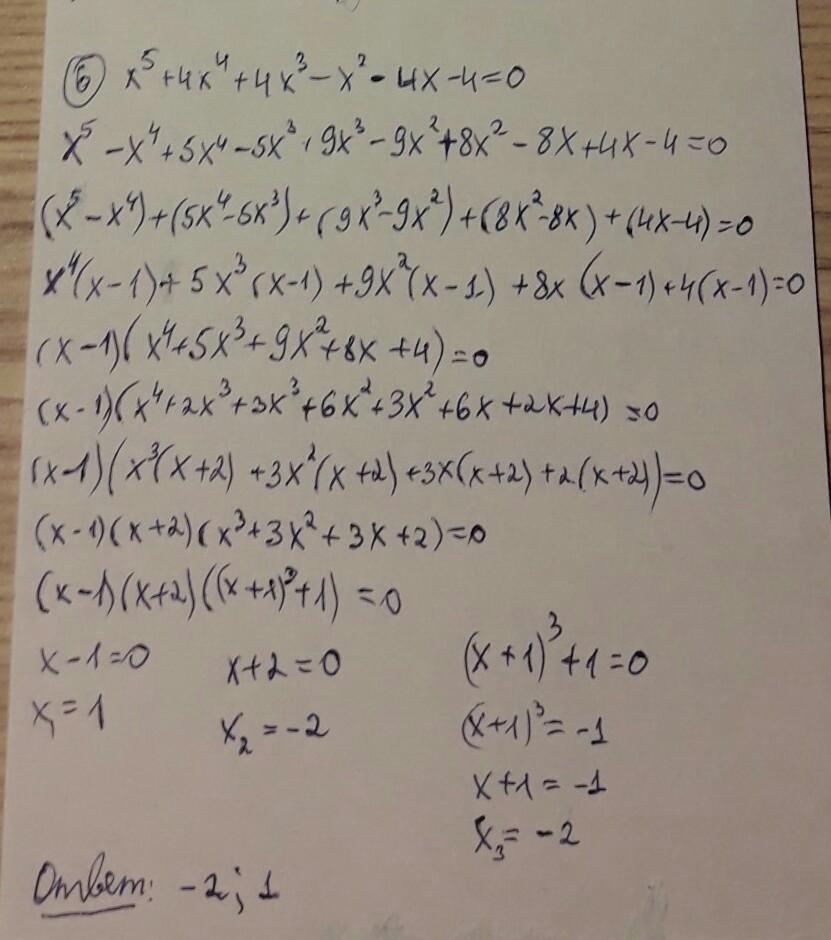 ⑥ x⁵+4x⁴+4x³-x²-4x-4=0
x⁵-x⁴+5x⁴-5x³+9x³-9x²+8x²-8x+4x-4=0
(x⁵-x⁴)+(5x⁴-5x³)+(9x³-9x²)+(8x²-8x)+(4x-4)=0
x⁴(x-1)+5x³(x-1)+9x²(x-1)+8x(x-1)+4(x-1)=0
(x-1)(x⁴+5x³+9x²+8x+4)=0
(x-1)(x⁴+2x³+3x³+6x²+3x²+6x+2x+4)=0
(x-1)(x³(x+2)+3x²(x+2)+3x(x+2)+2(x+2))=0
(x-1)(x+2)(x³+3x²+3x+2)=0
(x-1)(x+2)((x+1)³+1)=0
x-1=0 x+2=0 (x+1)³+1=0
x₁=1 x₂=-2 (x+1)³=-1
x+1=-1
x₃=-2
Ответ: -2; 1